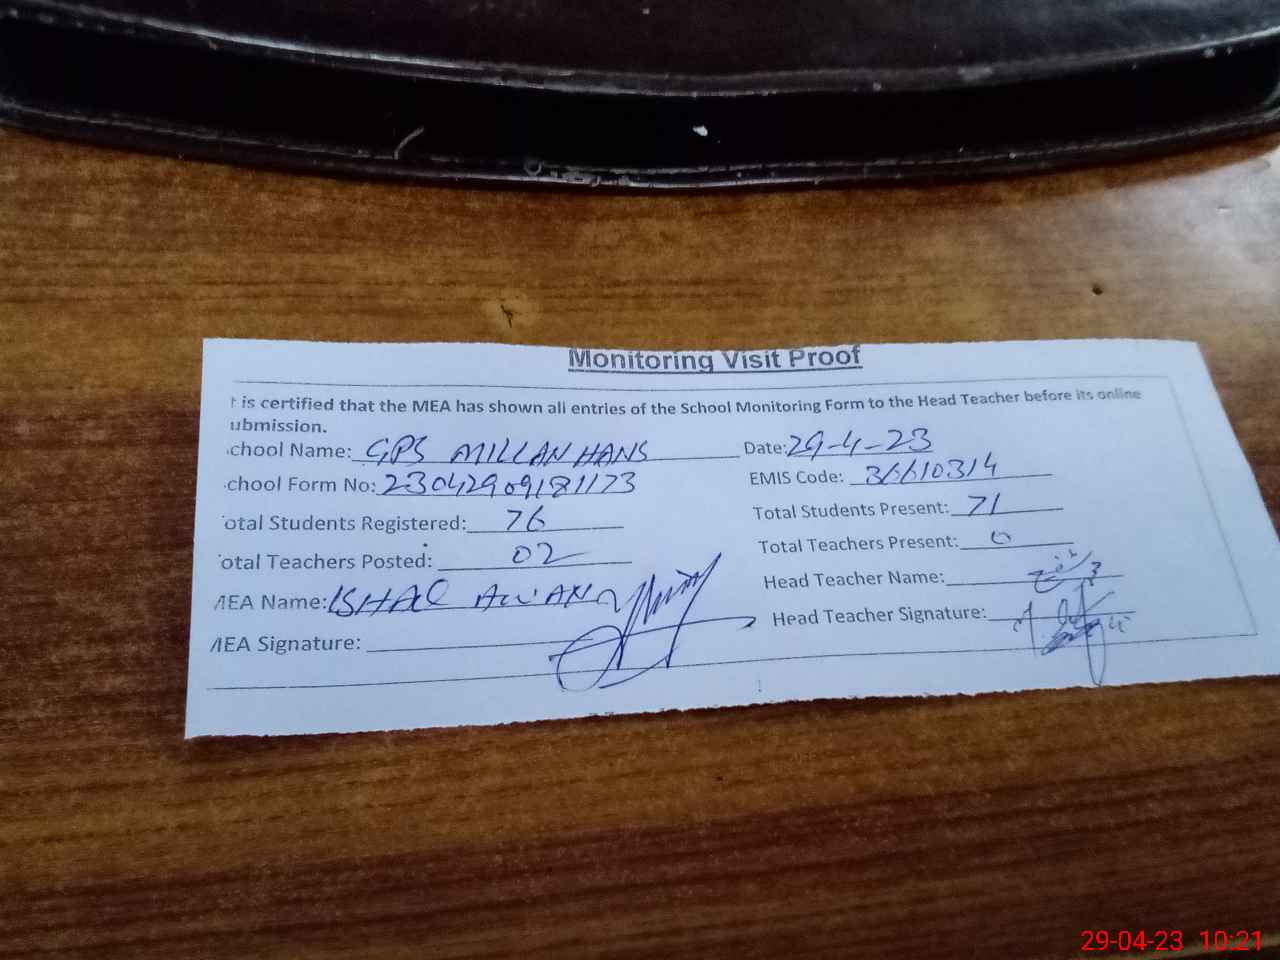 Monitoring Visit Proof
t is certified that the MEA has shown all entries of the School Monitoring Form to the Head Teacher before its online
ubmission.
chool Name: GPS MILLAN HANS Date: 29-4-23
chool Form No: 23042909181173 EMIS Code: 36610314
otal Students Registered: 76 Total Students Present: 71
otal Teachers Posted: 02 Total Teachers Present: 0
MEA Name: ISHAQ AWAN Head Teacher Name:
MEA Signature: Head Teacher Signature:
29-04-23 10:21